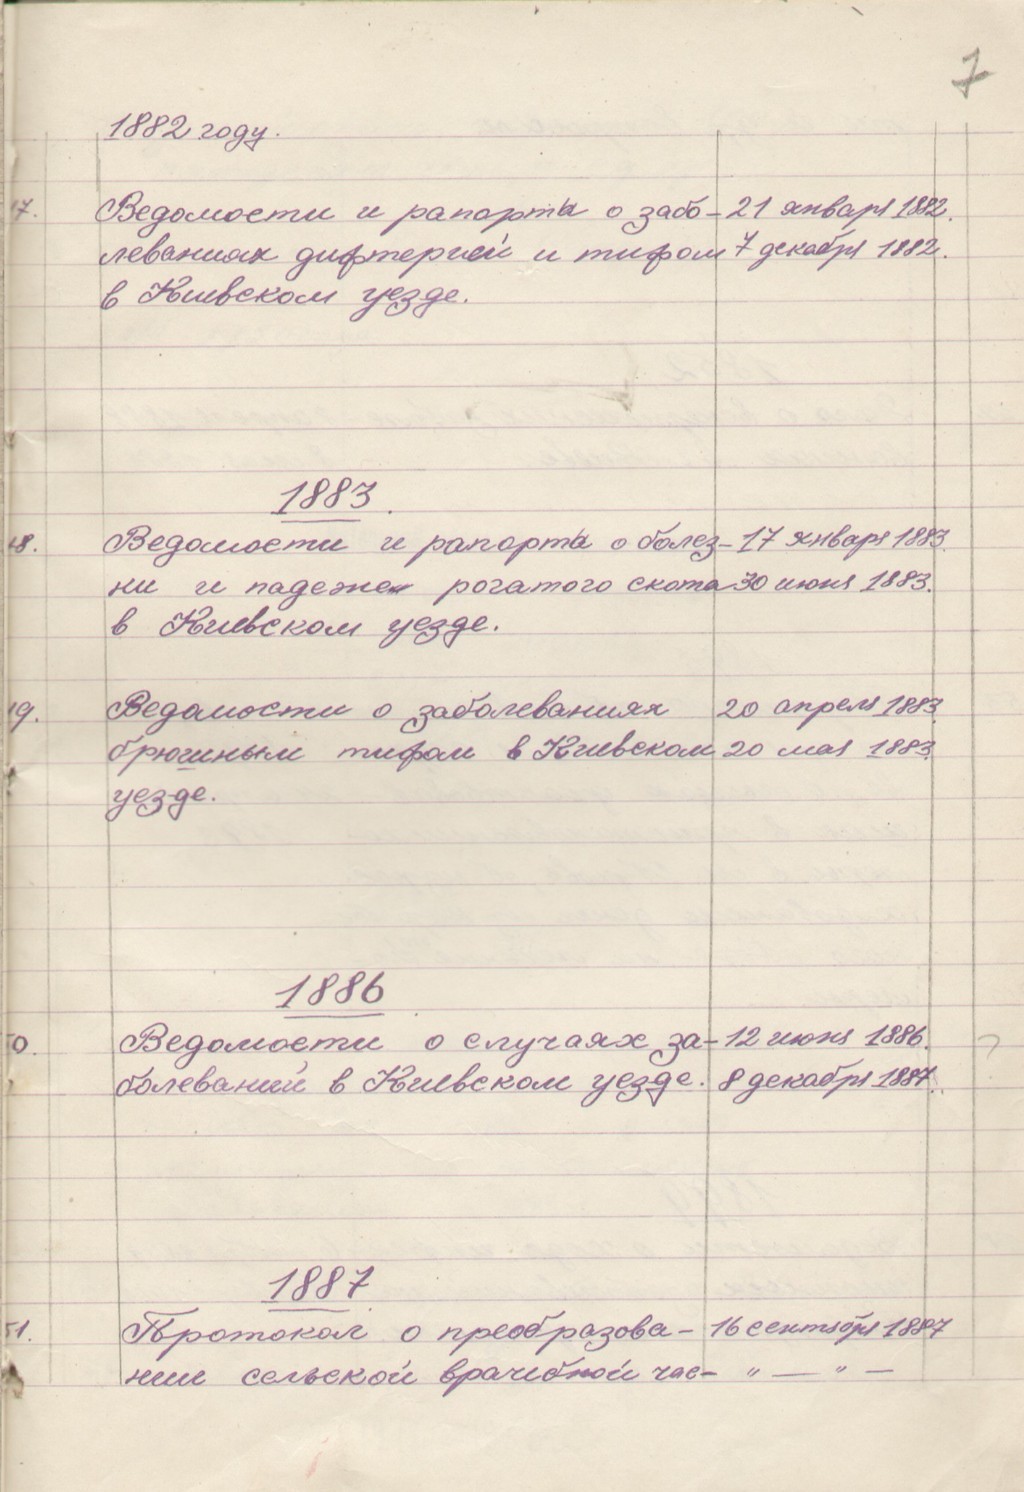 7
1882 году.
17. Ведомости и рапорта о забо- 21 января 1882.
леваниях дифтерией и тифом 7 декабря 1882.
в Киевском уезде.
1883.
18. Ведомости и рапорта о болез- 17 января 1883.
ни и падеже рогатого скота 30 июня 1883.
в Киевском уезде.
19. Ведомости о заболеваниях 20 апреля 1883.
брюшным тифом в Киевском 20 мая 1883.
уезде.
1886
0. Ведомости о случаях за- 12 июня 1886.
болеваний в Киевском уезде. 8 декабря 1887.
1887.
51. Протокол о преобразова- 16 сентября 1887
нии сельской врачебной час- " — " —